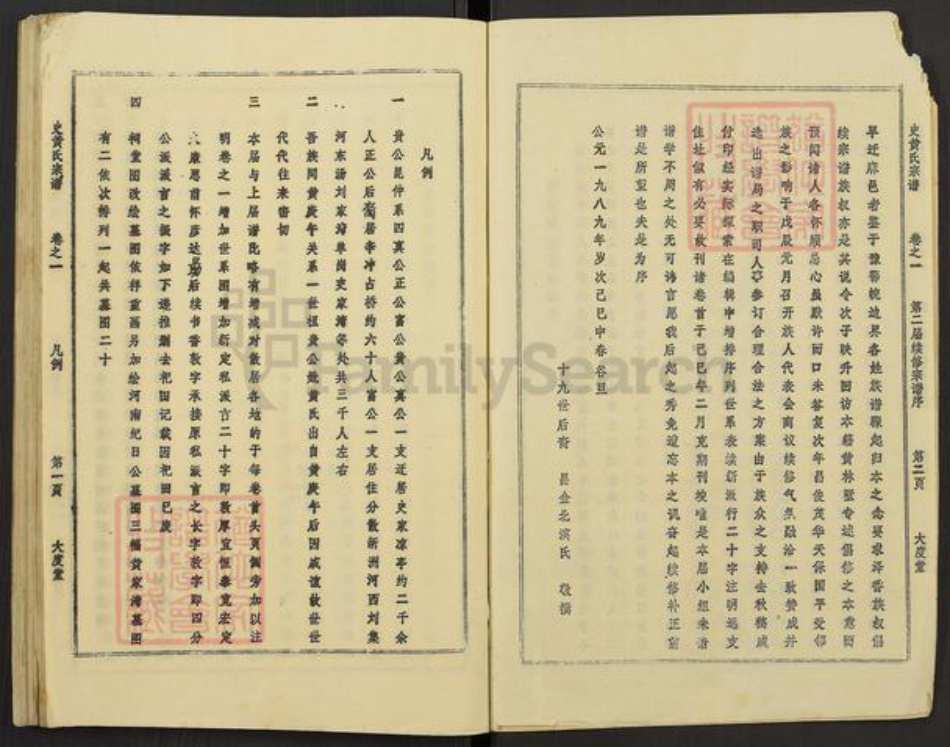 史黄氏宗谱 卷之一 第二届续修宗谱序 第二頁 大度堂
早迁麻邑者鉴于豫鄂皖边界各姓族谱骤起归本之念要求泽香族叔倡
续宗谱族叔亦是其说令次子映升回访本籍黄林墅专述倡修之本意而
预闻诸人各怀顾忌心虽默许而口未答复次年昌俊茂华天保国平受邻
族之影响于戊辰元月召开族人代表会商议续修气氛融洽一致赞成并
选出谱局之职司人 参订合理合法之方案由于族众之支持去秋稿成
付印经实际探索在编辑中增排序列世系表续新派行二十字注明迁支
住址似有必要故刊诸卷首于己巳年二月克期刊竣唯是本届小组未谙
谱学不周之处无可讳言愿我后起之秀免遗忘本之讥奋起续修补正前
谱是所望也夫是为序
公元一九八九年岁次己巳中春谷旦
十九世后裔 昌金北滨氏 敬撰
凡例
一 贵公昆仲系四真公正公富公贵公真公一支迁居史家凉亭约二千余
人正公后裔居李冲占桥约六十人富公一支居住分散新洲河西刘集
河东汤刘家湾单岗史家湾等处共三千人左右
二 吾族同黄庚午关系一世祖贵公妣黄氏出自黄庚午后因戚谊故世世
代代往来密切
三 本届与上届谱比略有增减对散居各地的于每卷首头页侧旁加以注
明卷之一增加世系图增加新定私派言二十字即敦厚宜恒泰宽宏定
久康思前怀彦达 后续书香敦字承接原私派言之长字敦字即四分
公派派言之振字如下递推删去祀田记载因祀田已废
四 祠堂图改绘墓图依样重画另加绘河南纪日公墓图三幅黄家湾墓图
有二依次特列一起共墓图二十
史黄氏宗谱 卷之一 凡例 第一頁 大度堂
FamilySearch